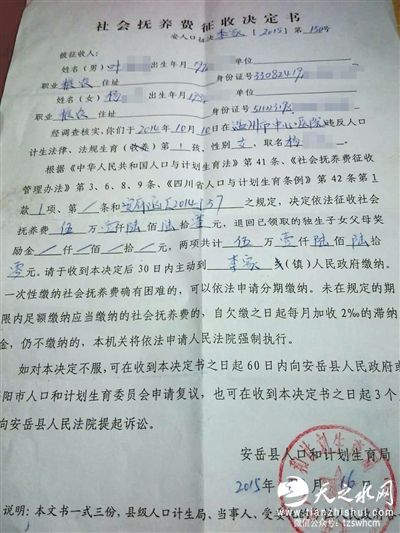 社会抚养费征收决定书
安人口征决李家[2015]第150号
被征收人:
姓名(男)叶 出生年月 单位
职业 农 住址 身份证号33082419
姓名(女)杨 出生年月 单位
职业 农 住址 身份证号5110219
经调查核实,你们于2014年10月10日在温州市中心医院违反人
口计生法律、法规生育(收养)第1孩,性别女,取名杨
根据《中华人民共和国人口与计划生育法》第41条、《社会抚养费征收
管理办法》第3、6、8、9条、《四川省人口与计划生育条例》第42条第1
款1项、第/条和 [2014]37之规定,决定依法征收社会
抚养费伍万壹仟陆佰陆拾零元,退回已领取的独生子女父母奖
励金/仟/佰/拾/元,两项共计伍万壹仟陆佰陆拾
零元。请于收到本决定后30日内主动到李家乡(镇)人民政府缴纳。
一次性缴纳社会抚养费确有困难的,可以依法申请分期缴纳。未在规定的期
限内足额缴纳应当缴纳的社会抚养费的,自欠缴之日起每月加收2‰的滞纳
金,仍不缴纳的,本机关将依法申请人民法院强制执行。
如对本决定不服,可在收到本决定书之日起60日内向安岳县人民政府或
阳市人口和计划生育委员会申请复议,也可在收到本决定书之日起3个
向安岳县人民法院提起诉讼。
安岳县人口和计划生育局
2015年 月16
说明:本文书一式三份,县级人口计生局、当事人、受
天之水网
www.tianzhishui.com
微信公众号:tzswhcm